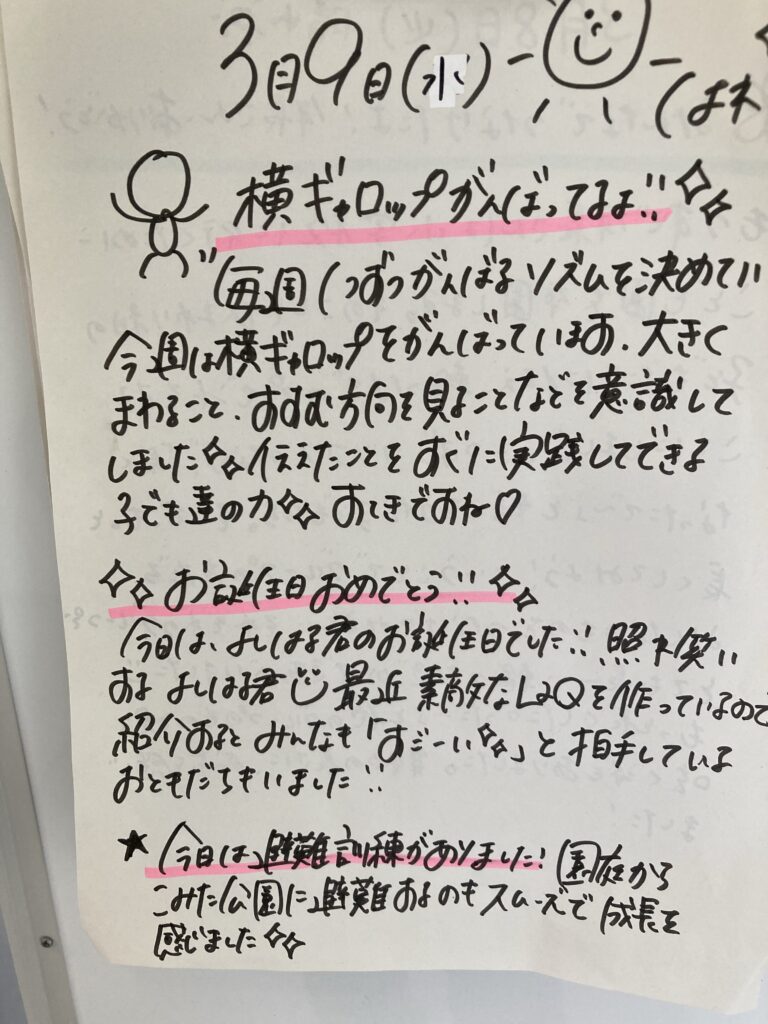 3月9日(水)
(はれ
横ギャロップがんばってるよ!!
毎週1つずつがんばるリズムを決めてい
今週は横ギャロップをがんばっています。大きく
まわること、すすむ方向を見ることなどを意識して
しました 伝えたことをすぐに実践してできる
子ども達の力 すてきですね♡
お誕生日おめでとう!!
今日は、よしはる君のお誕生日でした!! 照れ笑い
する よしはる君 最近 素敵なLaQを作っているので
紹介すると みんなも「すごーい」と拍手している
おともだちもいました!!
★今日は避難訓練がありました! 園庭から
こみた公園に避難するのもスムーズで成長を
感じました